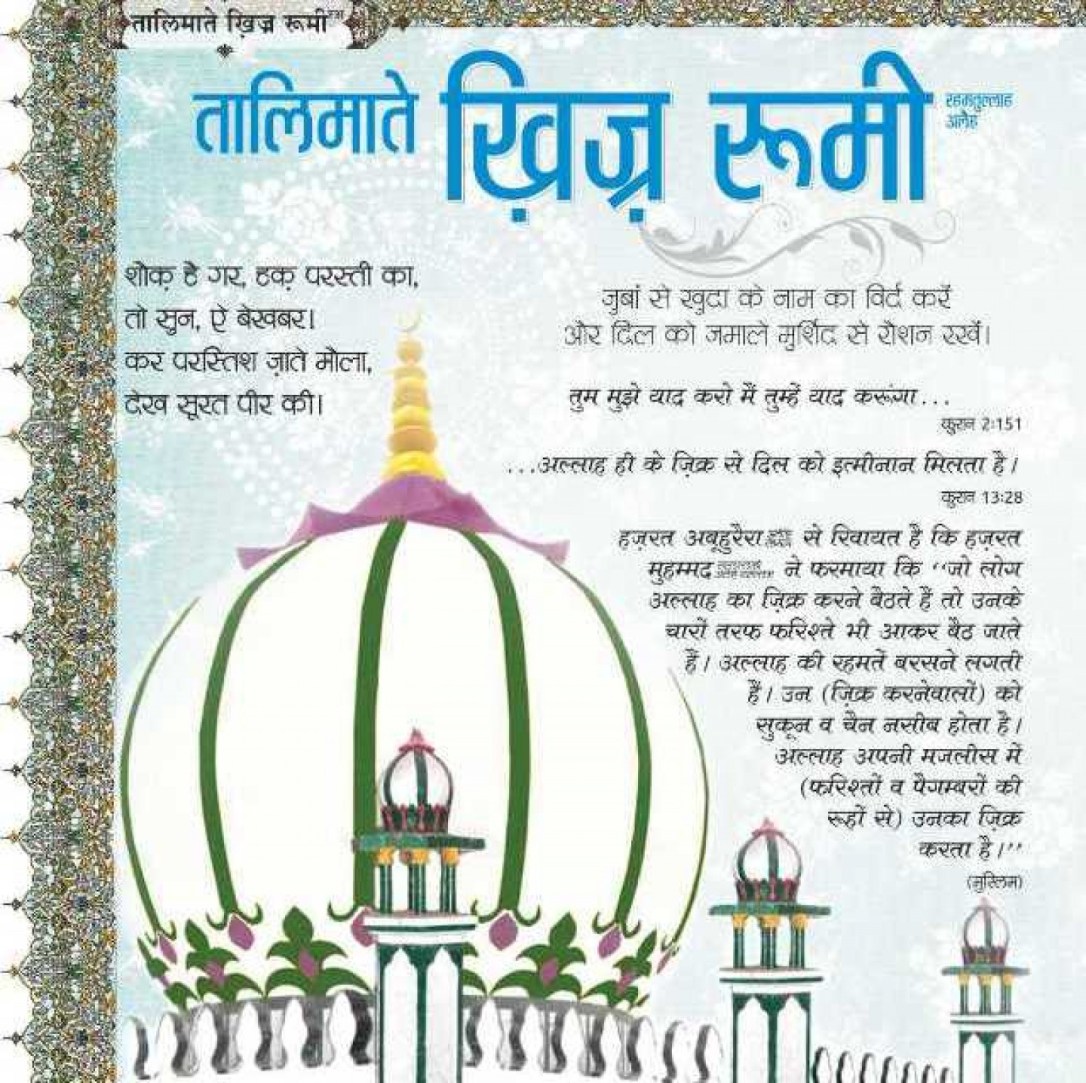 तालिमाते ख़िज़्र रूमी
तालिमाते ख़िज़्र रूमी रहमतुल्लाह
अलैह
शौक़ है गर, हक़ परस्ती का,
तो सुन, ऐ बेखबर।
कर परस्तिश ज़ाते मौला,
देख सूरत पीर की।
जुबां से खुदा के नाम का विर्द करें
और दिल को जमाले मुर्शिद से रौशन रखें।
तुम मुझे याद करो मैं तुम्हें याद करूंगा...
कुरान 2:151
...अल्लाह ही के ज़िक्र से दिल को इत्मीनान मिलता है।
कुरान 13:28
हज़रत अबूहुरैरा से रिवायत है कि हज़रत
मुहम्मद ने फरमाया कि ‘‘जो लोग
अल्लाह का ज़िक्र करने बैठते हैं तो उनके
चारों तरफ फरिश्ते भी आकर बैठ जाते
हैं। अल्लाह की रहमतें बरसने लगती
हैं। उन (ज़िक्र करनेवालों) को
सुकून व चैन नसीब होता है।
अल्लाह अपनी मजलीस में
(फरिश्तों व पैगम्बरों की
रूहों से) उनका ज़िक्र
करता है।’’
(मुस्लिम)